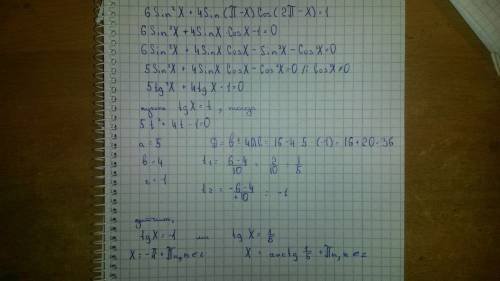 6Sin²X + 4Sin(π-X)Cos(2π-X)=1
6Sin²X + 4SinX CosX-1=0
6Sin²X + 4SinX CosX-Sin²X-Cos²X=0
5Sin²X + 4SinX CosX-Cos²X=0 // Cos²X≠0
5tg²X + 4tgX-1=0
пусть tgX=t, тогда
5t²+4t-1=0
a=5 D=b²-4ac=16-4·5·(-1)=16+20=36
b=4 t₁= (6-4)/10 = 2/10 = 1/5
c=-1 t₂= (-6-4)/10 = -1
tgX=-1 или tgX=1/5
X=-π/4+πn, n∈z X=arctg 1/5+πn, n∈z